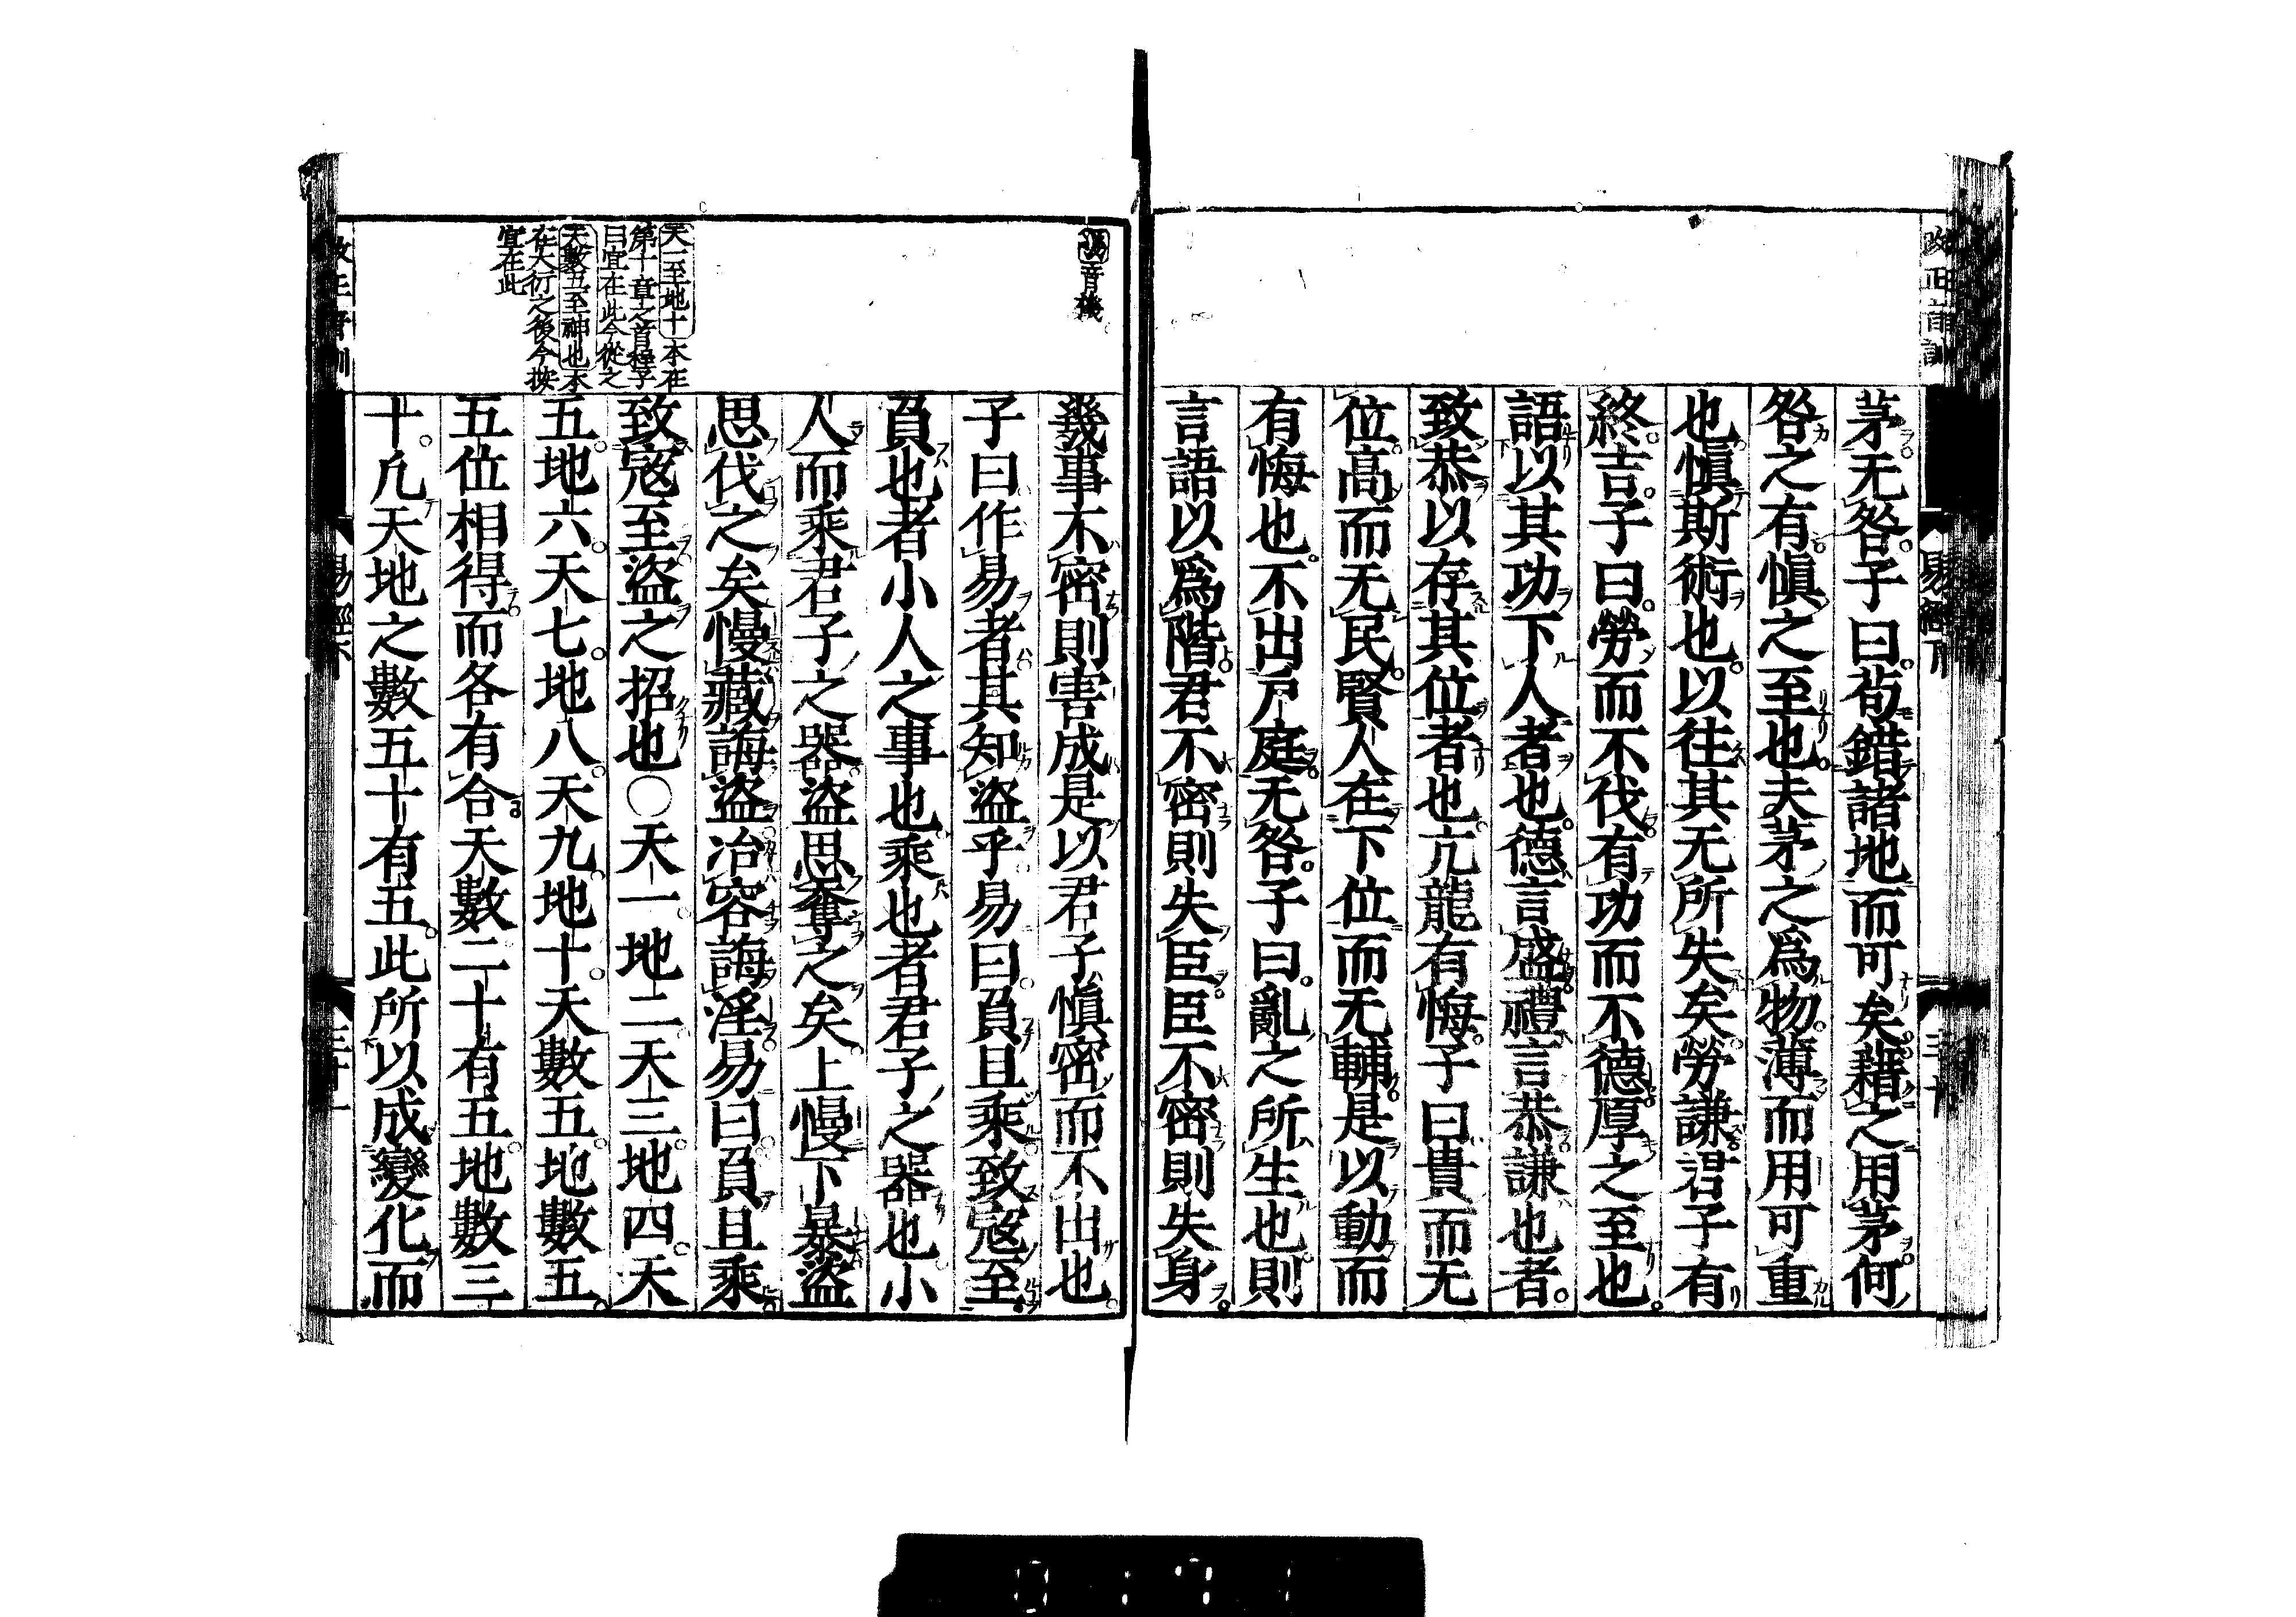 茅无咎子曰苟錯諸地而可矣藉之用茅何
咎之有愼之至也夫茅之爲物薄而用可重
也愼斯術也以往其无所失矣勞謙君子有
終吉子曰勞而不伐有功而不德厚之至也
語以其功下人者也德言盛禮言恭謙也者
致恭以存其位者也亢龍有悔子曰貴而无
位高而无民賢人在下位而无輔是以動而
有悔也不出戶庭无咎子曰亂之所生也則
言語以爲階君不密則失臣臣不密則失身
音機
幾事不密則害成是以君子愼密而不出也
子曰作易者其知盜乎易曰負且乘致寇至
負也者小人之事也乘也者君子之器也小
人而乘君子之器盜思奪之矣上慢下暴盜
思伐之矣慢藏誨盜冶容誨淫易曰負且乘
天一至地十本在
第十章之首程子
曰宜在此今從之
天數五至神也本
在大衍之後今按
宜在此
致寇至盜之招也〇天一地二天三地四天
五地六天七地八天九地十天數五地數五
五位相得而各有合天數二十有五地數三
十凡天地之數五十有五此所以成變化而
易經下